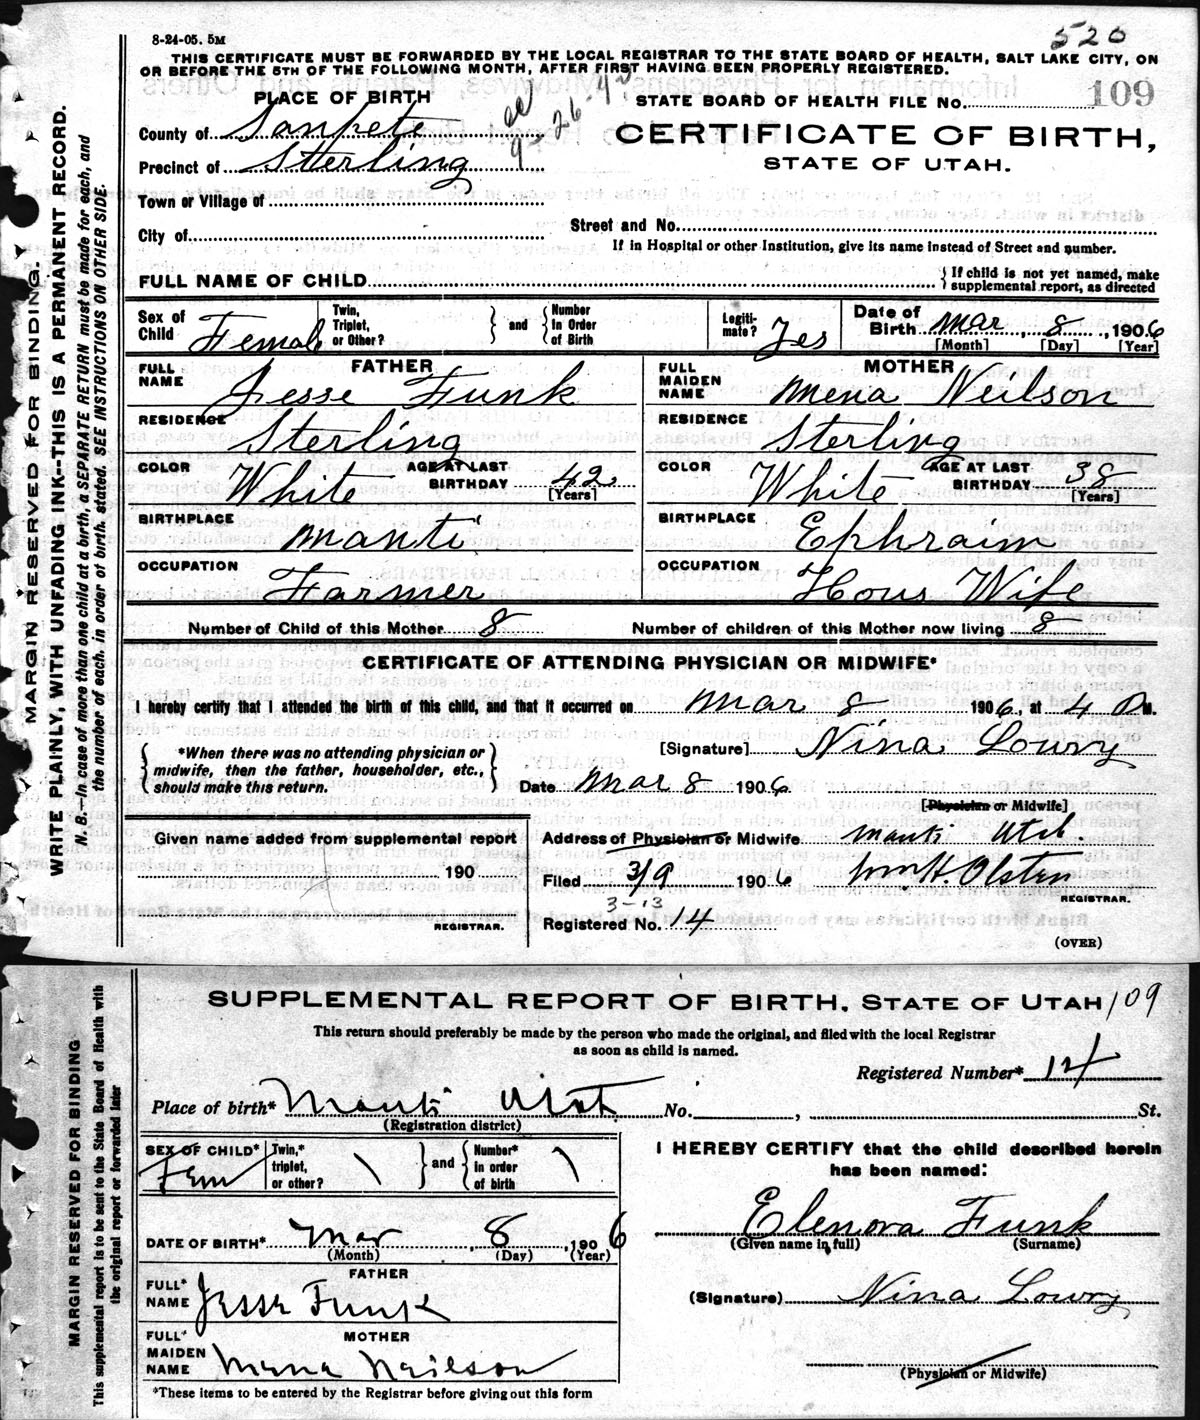 520
8-24-05. 5M
THIS CERTIFICATE MUST BE FORWARDED BY THE LOCAL REGISTRAR TO THE STATE BOARD OF HEALTH, SALT LAKE CITY, ON
OR BEFORE THE 5TH OF THE FOLLOWING MONTH, AFTER FIRST HAVING BEEN PROPERLY REGISTERED.
PLACE OF BIRTH
STATE BOARD OF HEALTH FILE No. 109
County of Sanpete
CERTIFICATE OF BIRTH,
Precinct of Sterling
STATE OF UTAH.
9-26-42
Town or Village of
City of Street and No.
If in Hospital or other Institution, give its name instead of Street and number.
FULL NAME OF CHILD { If child is not yet named, make supplemental report, as directed
Sex of Child Female Twin, Triplet, or Other? } and { Number In Order of Birth Legiti-mate? Yes Date of Birth Mar, 8, 1906
[Month] [Day] [Year]
FATHER
FULL NAME Jesse Funk
MOTHER
FULL MAIDEN NAME Mena Neilson
RESIDENCE Sterling
RESIDENCE Sterling
COLOR White AGE AT LAST BIRTHDAY 42 [Years]
COLOR White AGE AT LAST BIRTHDAY 38 [Years]
BIRTHPLACE Manti
BIRTHPLACE Ephraim
OCCUPATION Farmer
OCCUPATION Hous Wife
Number of Child of this Mother 8 Number of children of this Mother now living 8
CERTIFICATE OF ATTENDING PHYSICIAN OR MIDWIFE*
I hereby certify that I attended the birth of this child, and that it occurred on Mar 8 1906, at 4 P M.
{ *When there was no attending physician or midwife, then the father, householder, etc., should make this return. }
[Signature] Nina Lowry
Date Mar 8 1906
[Physician or Midwife]
Given name added from supplemental report
190
REGISTRAR.
Address of Physician or Midwife Manti Utah
Filed 3/9 1906 Wm H Olsten
3-13 REGISTRAR.
Registered No. 14
(OVER)
MARGIN RESERVED FOR BINDING.
WRITE PLAINLY, WITH UNFADING INK--THIS IS A PERMANENT RECORD.
N. B.--In case of more than one child at a birth, a SEPARATE RETURN must be made for each, and
the number of each, in order of birth, stated. SEE INSTRUCTIONS ON OTHER SIDE.
SUPPLEMENTAL REPORT OF BIRTH, STATE OF UTAH 109
This return should preferably be made by the person who made the original, and filed with the local Registrar
as soon as child is named.
Registered Number* 14
Place of birth* Manti Utah No. , St.
(Registration district)
SEX OF CHILD* Fem Twin,* triplet, or other? \ } and { Number* in order of birth \
I HEREBY CERTIFY that the child described herein
has been named:
Elenora Funk
(Given name in full) (Surname)
DATE OF BIRTH* Mar, 8, 1906
(Month) (Day) (Year)
FATHER
FULL* NAME Jesse Funk
(Signature) Nina Lowry
MOTHER
FULL* MAIDEN NAME Mena Neilson
(Physician or Midwife)
*These items to be entered by the Registrar before giving out this form
MARGIN RESERVED FOR BINDING
This supplemental report is to be sent to the State Board of Health with
the original report or forwarded later